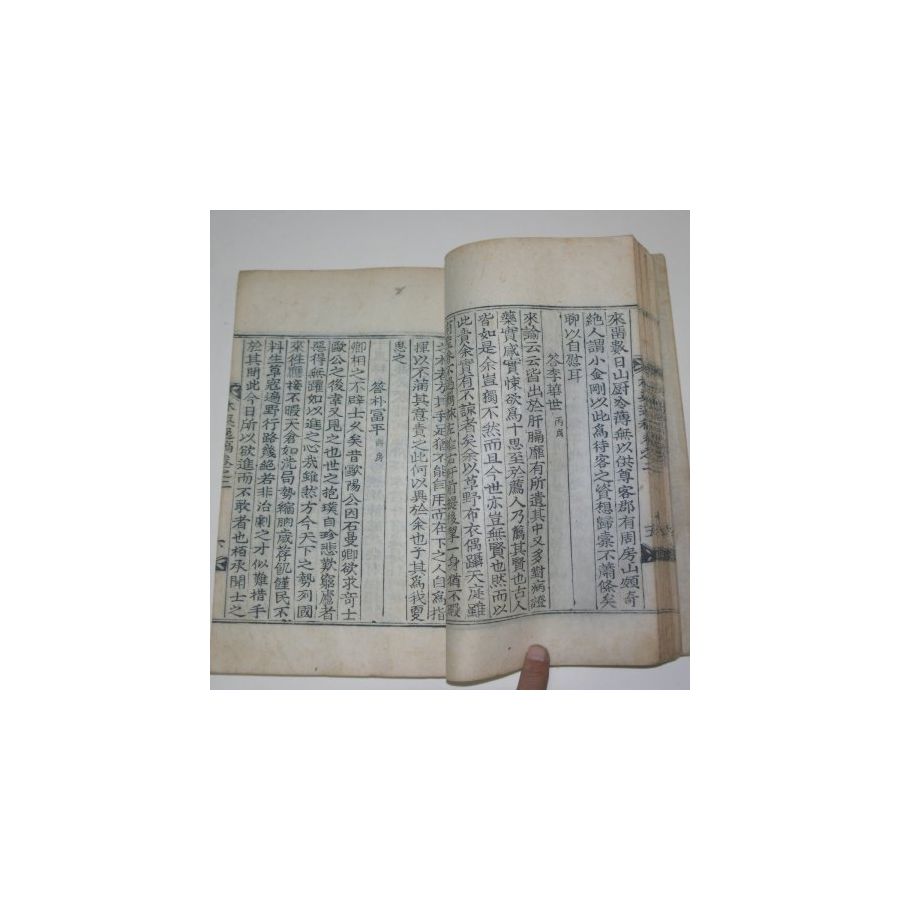 來留數日山厨冷薄無以供尊客郡有周房山頗奇
絕人謂小金剛以此爲待客之資想歸橐不蕭條矣
聊以自慰耳
答李華世 丙戌
來諭云云皆出於肝膈靡有所遺其中又多對病證
藥實感實悚欲爲十思至於薦人乃舊其賢也古人
皆如是余豈獨不然而且今世亦豈無賢也然而以
此責余實有不諒者矣余以草野布衣偶躡天庭雖
身猶不暇
手足猶不能自用而在下之人自爲指
揮以不滿其意責之此何以異於余也子其爲我更
思之
答朴富平
卿相之不辟士久矣昔歐陽公因石曼卿欲求奇士
歐公之後韋又見之也世之抱璞自珍悲歎窮廬者
惡得無躍如以進之心哉雖然方今天下之勢列國
來徃應接不暇天倉如洗局勢縮朒歲荐飢饉民不
料生草寇遍野行路幾絕若非治劇之才似難措手
於其間此今日所以欲進而不敢者也栢承聞士之